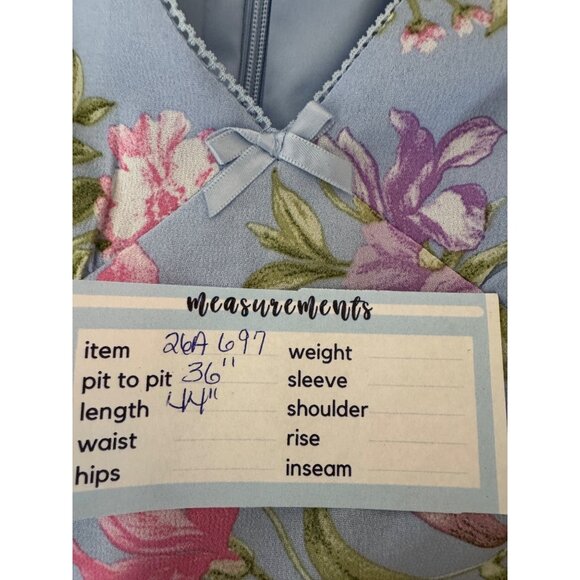 measurements
item 26A 697 weight
pit to pit 36" sleeve
length 44" shoulder
waist rise
hips inseam